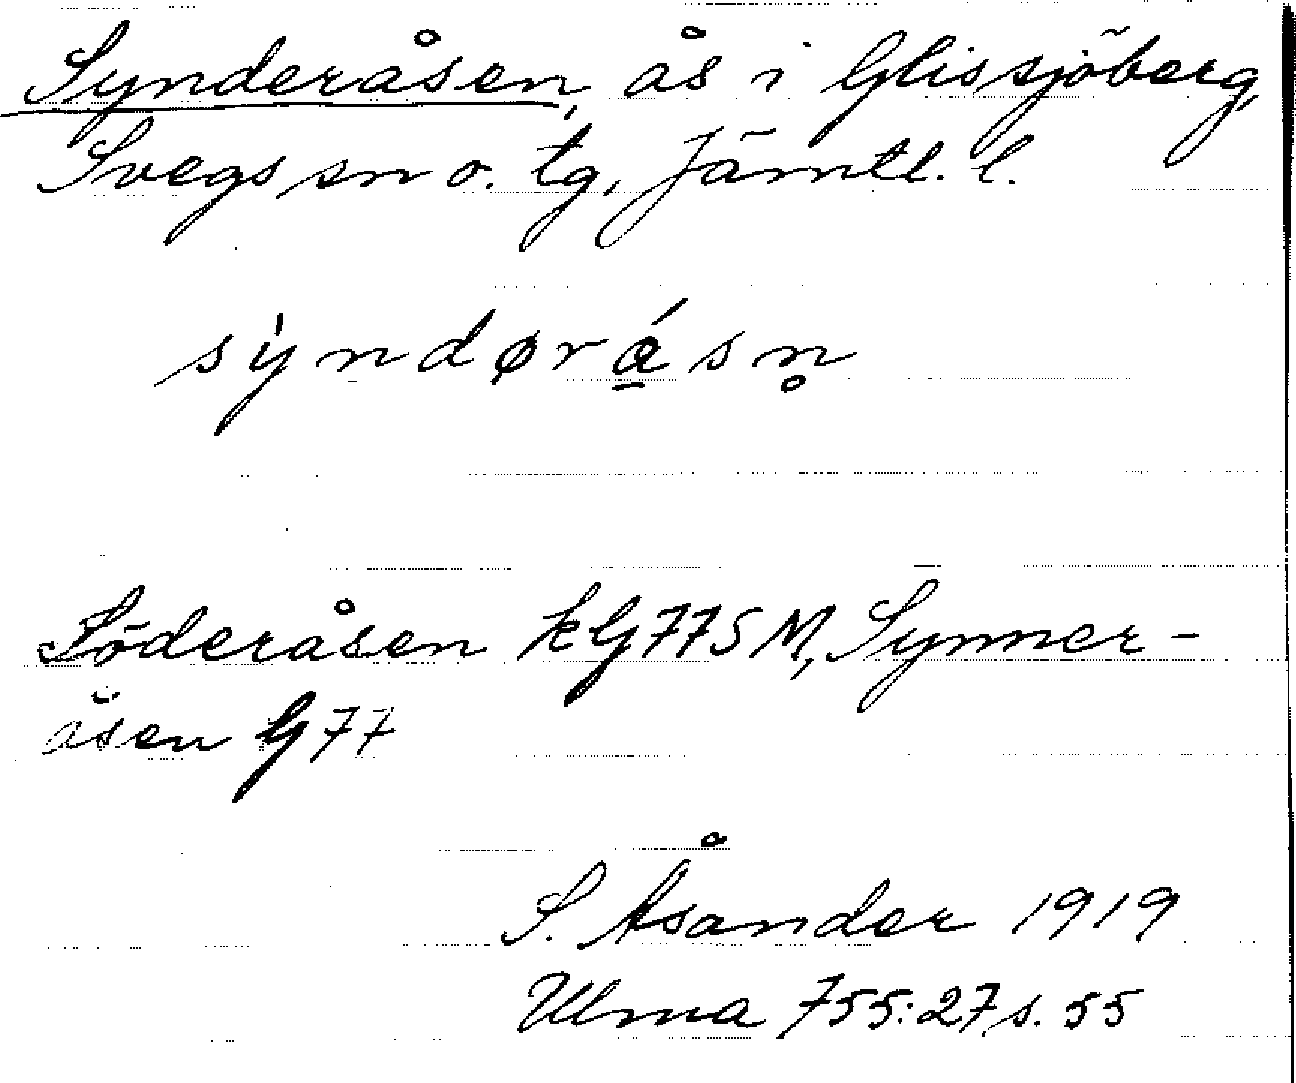 Synderåsen, ås i Glissjöberg,
Svegs sn o. tg, Jämtl. l.
sýndørǻsn̥
Söderåsen kG77SM, Synner-
åsen G77
S. Åsander 1919
Ulma 755:27, s. 55